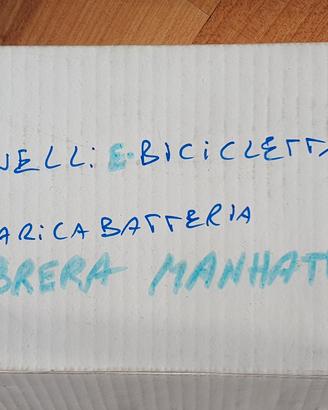 VELLI: E-BICICLETTA
ARICA BATTERIA
BRERA MANHATT